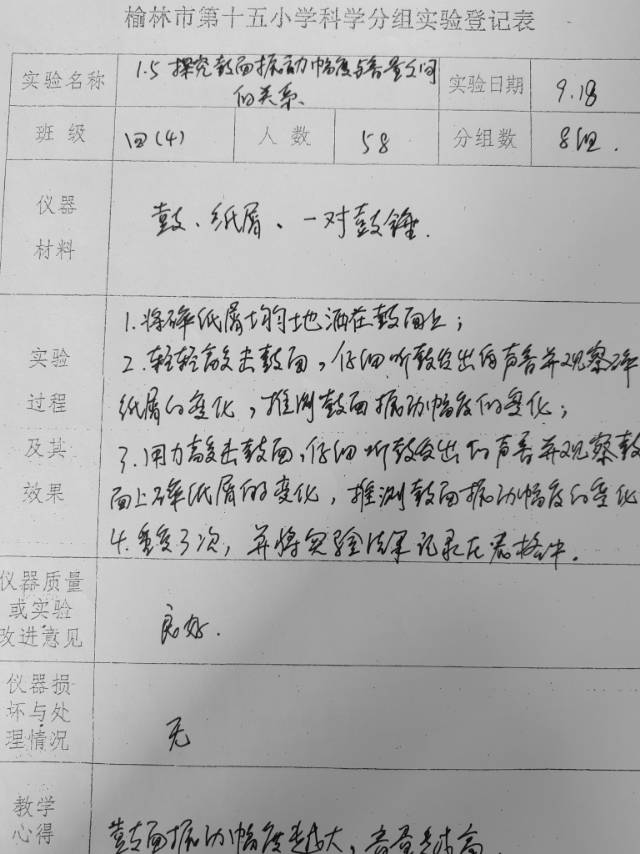 榆林市第十五小学科学分组实验登记表
实验名称 1.5 探究鼓面振动幅度与音量之间的关系. 实验日期 9.18
班 级 四(4) 人 数 58 分组数 8组.
仪器材料 鼓、纸屑、一对鼓锤.
实验过程及其效果
1.将碎纸屑均匀地洒在鼓面上；
2.轻轻敲击鼓面，仔细听鼓发出的声音并观察碎
纸屑的变化，推测鼓面振动幅度的变化；
3.用力敲击鼓面，仔细听鼓发出的声音并观察鼓
面上碎纸屑的变化，推测鼓面振动幅度的变化
4.重复3次，并将实验结果记录在表格中.
仪器质量或实验改进意见 良好.
仪器损坏与处理情况 无
教学心得 鼓面振动幅度越大，音量越高.